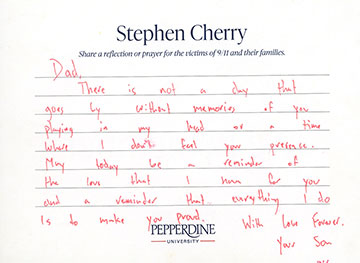 Stephen Cherry
Share a reflection or prayer for the victims of 9/11 and their families.
Dad,
There is not a day that
goes by without memories of you
playing in my head or a time
where I don't feel your presence.
May today be a reminder of
the love that I have for you
and a reminder that everything I do
is to make you proud.
With Love Forever,
PEPPERDINE
UNIVERSITY
Your Son